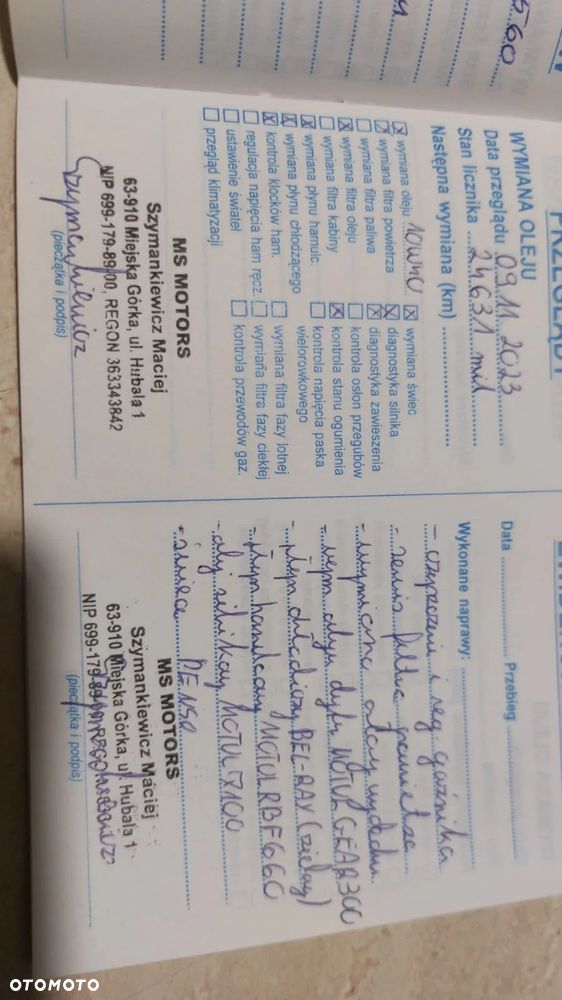 5.60
PRZEGLĄDY
WYMIANA OLEJU
Data przeglądu 09.11.2023
Stan licznika 24631 mil
Następna wymiana (km)
☒ wymiana oleju 10W40
☒ wymiana filtra powietrza
☐ wymiana filtra paliwa
☒ wymiana filtra oleju
☐ wymiana filtra kabiny
☒ wymiana płynu hamulc.
☒ wymiana płynu chłodzącego
☒ kontrola klocków ham.
☐ regulacja napięcia ham ręcz.
☐ ustawienie świateł
☐ przegląd klimatyzacji
☒ wymiana świec
☒ diagnostyka silnika
☒ diagnostyka zawieszenia
☐ kontrola osłon przegubów
☒ kontrola stanu ogumienia
☐ kontrola napięcia paska
wielorowkowego
☐ wymiana filtra fazy lotnej
☐ wymiana filtra fazy ciekłej
☐ kontrola przewodów gaz.
MS MOTORS
Szymankiewicz Maciej
63-910 Miejska Górka, ul. Hubala 1
NIP 699-179-89-00, REGON 363343842
Szymankiewicz
(pieczątka i podpis)
Data Przebieg
Wykonane naprawy:
- czyszczenie i reg. gaźnika
- serwis filtra powietrza
- wymiana
- wym. oleju dyfr MOTUL GEAR 300
- płyn chłodzący BEL-RAY (zielony)
- płyn hamulcowy MOTUL RBF660
- olej silnikowy MOTUL 7100
- świeca DENSO
MS MOTORS
Szymankiewicz Maciej
63-910 Miejska Górka, ul. Hubala 1
NIP 699-179-89-00, REGON
(pieczątka i podpis)
OTOMOTO